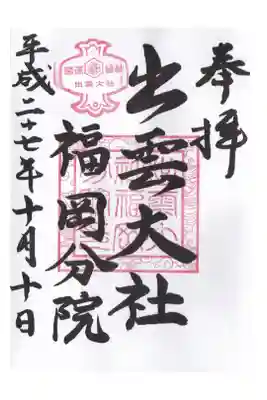 奉拝
出雲大社
福岡分院
平成二十七年十月十日
出雲大社